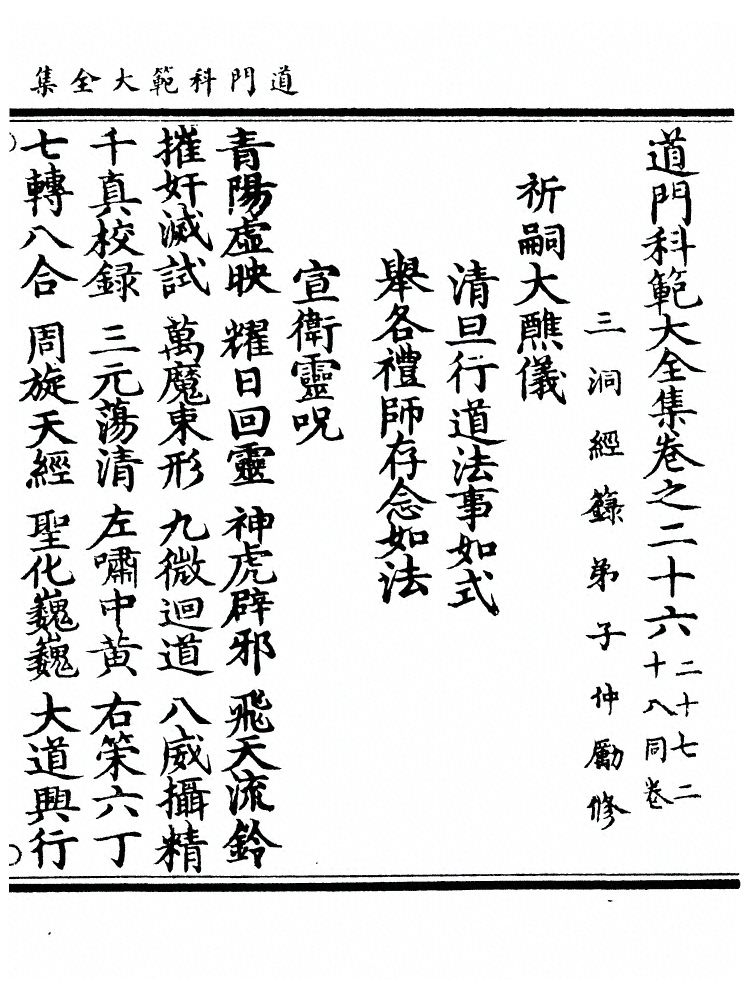 道門科範大全集
道門科範大全集卷之二十六二十七二十八同卷
三洞經籙弟子仲勵修
祈嗣大醮儀
清旦行道法事如式
舉各禮師存念如法
宣衛靈呪
青陽虛映 耀日回靈 神虎辟邪 飛天流鈴
摧奸滅試 萬魔束形 九微迴道 八威攝精
千真校録 三元蕩清 左嘯中黃 右策六丁
七轉八合 周旋天經 聖化巍巍 大道興行